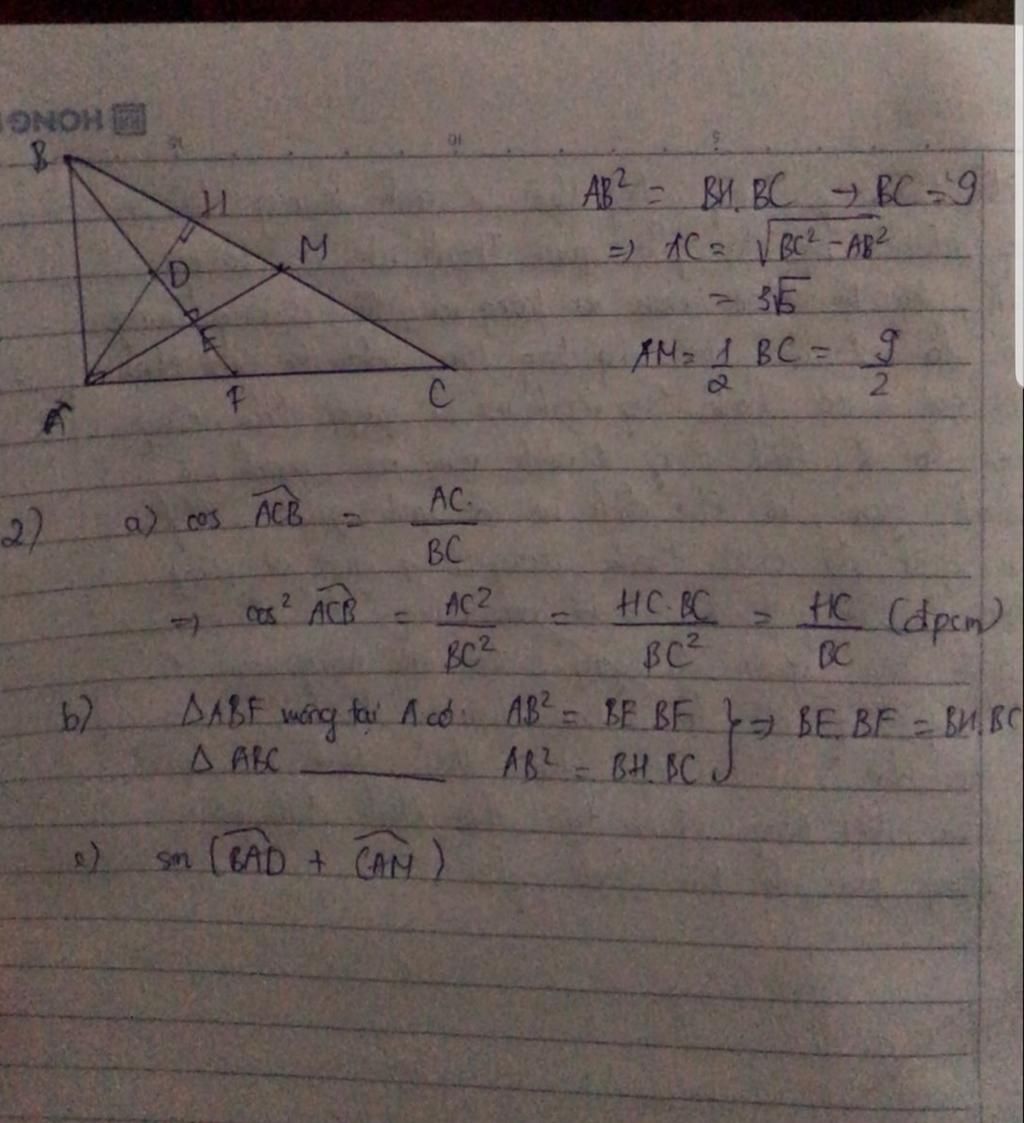 HONG
B
H
M
D
E
A
F
C
AB² = BH.BC → BC = 9
=> AC = √BC² - AB²
= 3√5
AM = 1/2 BC = 9/2
2) a) cos ACB = AC/BC
=> cos² ACB = AC²/BC² = HC.BC/BC² = HC/BC (đpcm)
b) ΔABF vuông tại A có: AB² = BE.BF } => BE.BF = BH.BC
Δ ABC ——— AB² = BH.BC
c) sin (BAD + CAM)